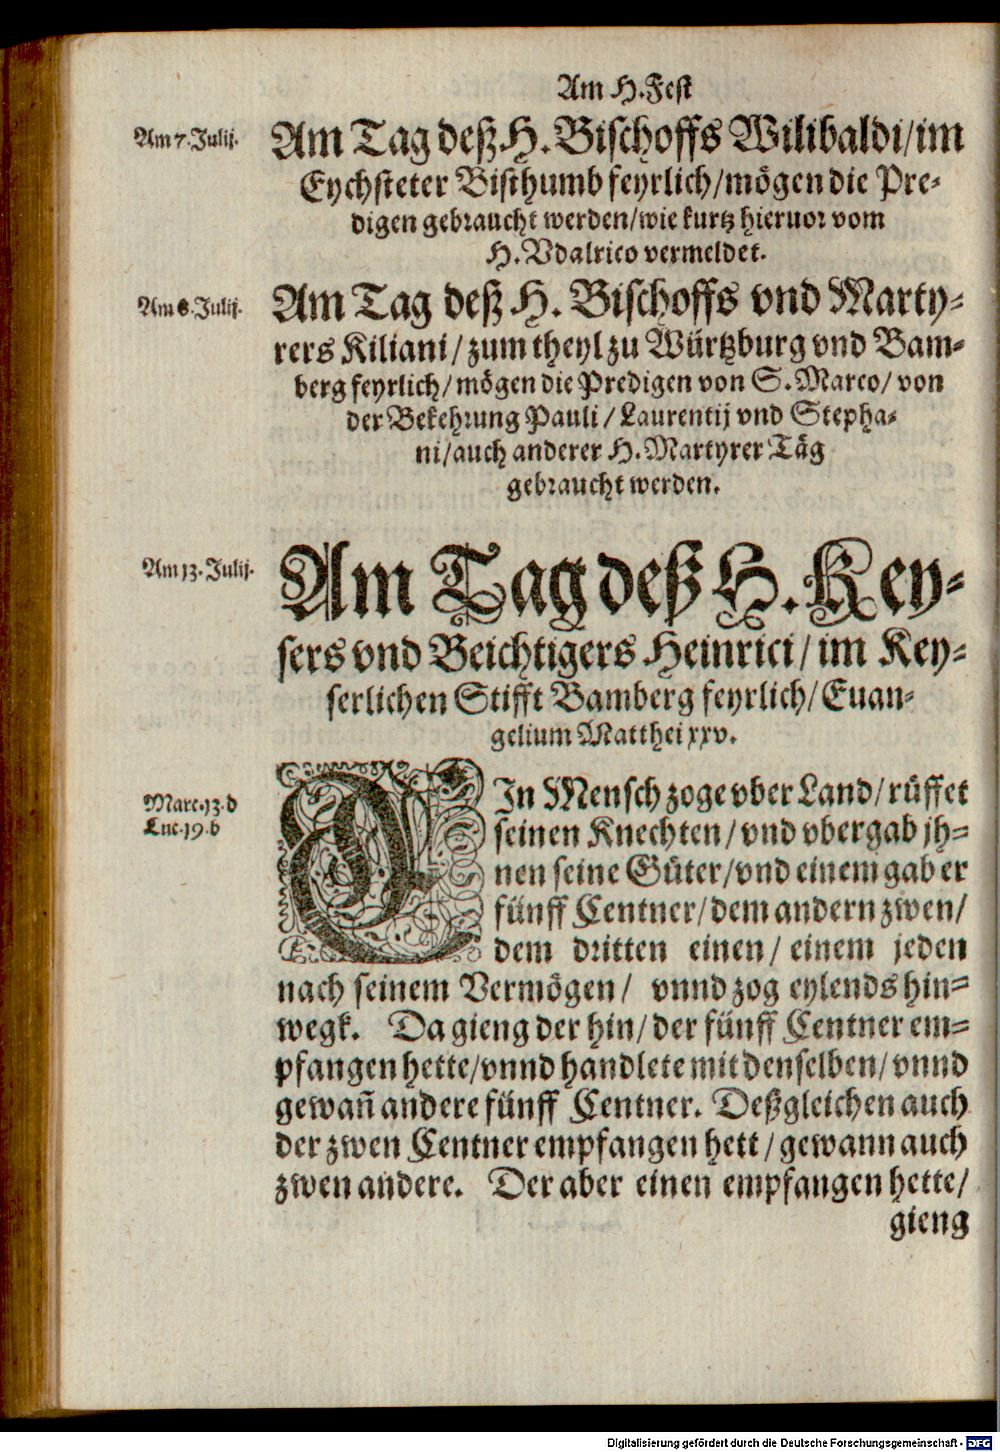 Am H. Fest
Am 7. Julij.
Am Tag deß H. Bischoffs Wilibaldi/ im
Eychsteter Bisthumb feyrlich/ mögen die Pre-
digen gebraucht werden/ wie kurtz hieruor vom
H. Vdalrico vermeldet.
Am 8. Julij.
Am Tag deß H. Bischoffs vnd Marty-
rers Kiliani/ zum theyl zu Würtzburg vnd Bam-
berg feyrlich/ mögen die Predigen von S. Marco/ von
der Bekehrung Pauli/ Laurentij vnd Stepha-
ni/ auch anderer H. Martyrer Täg
gebraucht werden.
Am 13. Julij.
Am Tag deß H. Key-
sers vnd Beichtigers Heinrici/ im Key-
serlichen Stifft Bamberg feyrlich/ Euan-
gelium Matthei xxv.
Marc. 13. d
Luc. 19. b
EIn Mensch zoge vber Land/ rüffet
seinen Knechten/ vnd vbergab jh-
nen seine Güter/ vnd einem gab er
fünff Centner/ dem andern zwen/
dem dritten einen/ einem jeden
nach seinem Vermögen/ vnnd zog eylends hin-
wegk. Da gieng der hin/ der fünff Centner em-
pfangen hette/ vnnd handlete mit denselben/ vnnd
gewañ andere fünff Centner. Deßgleichen auch
der zwen Centner empfangen hett/ gewann auch
zwen andere. Der aber einen empfangen hette/
gieng
Digitalisierung gefördert durch die Deutsche Forschungsgemeinschaft - DFG